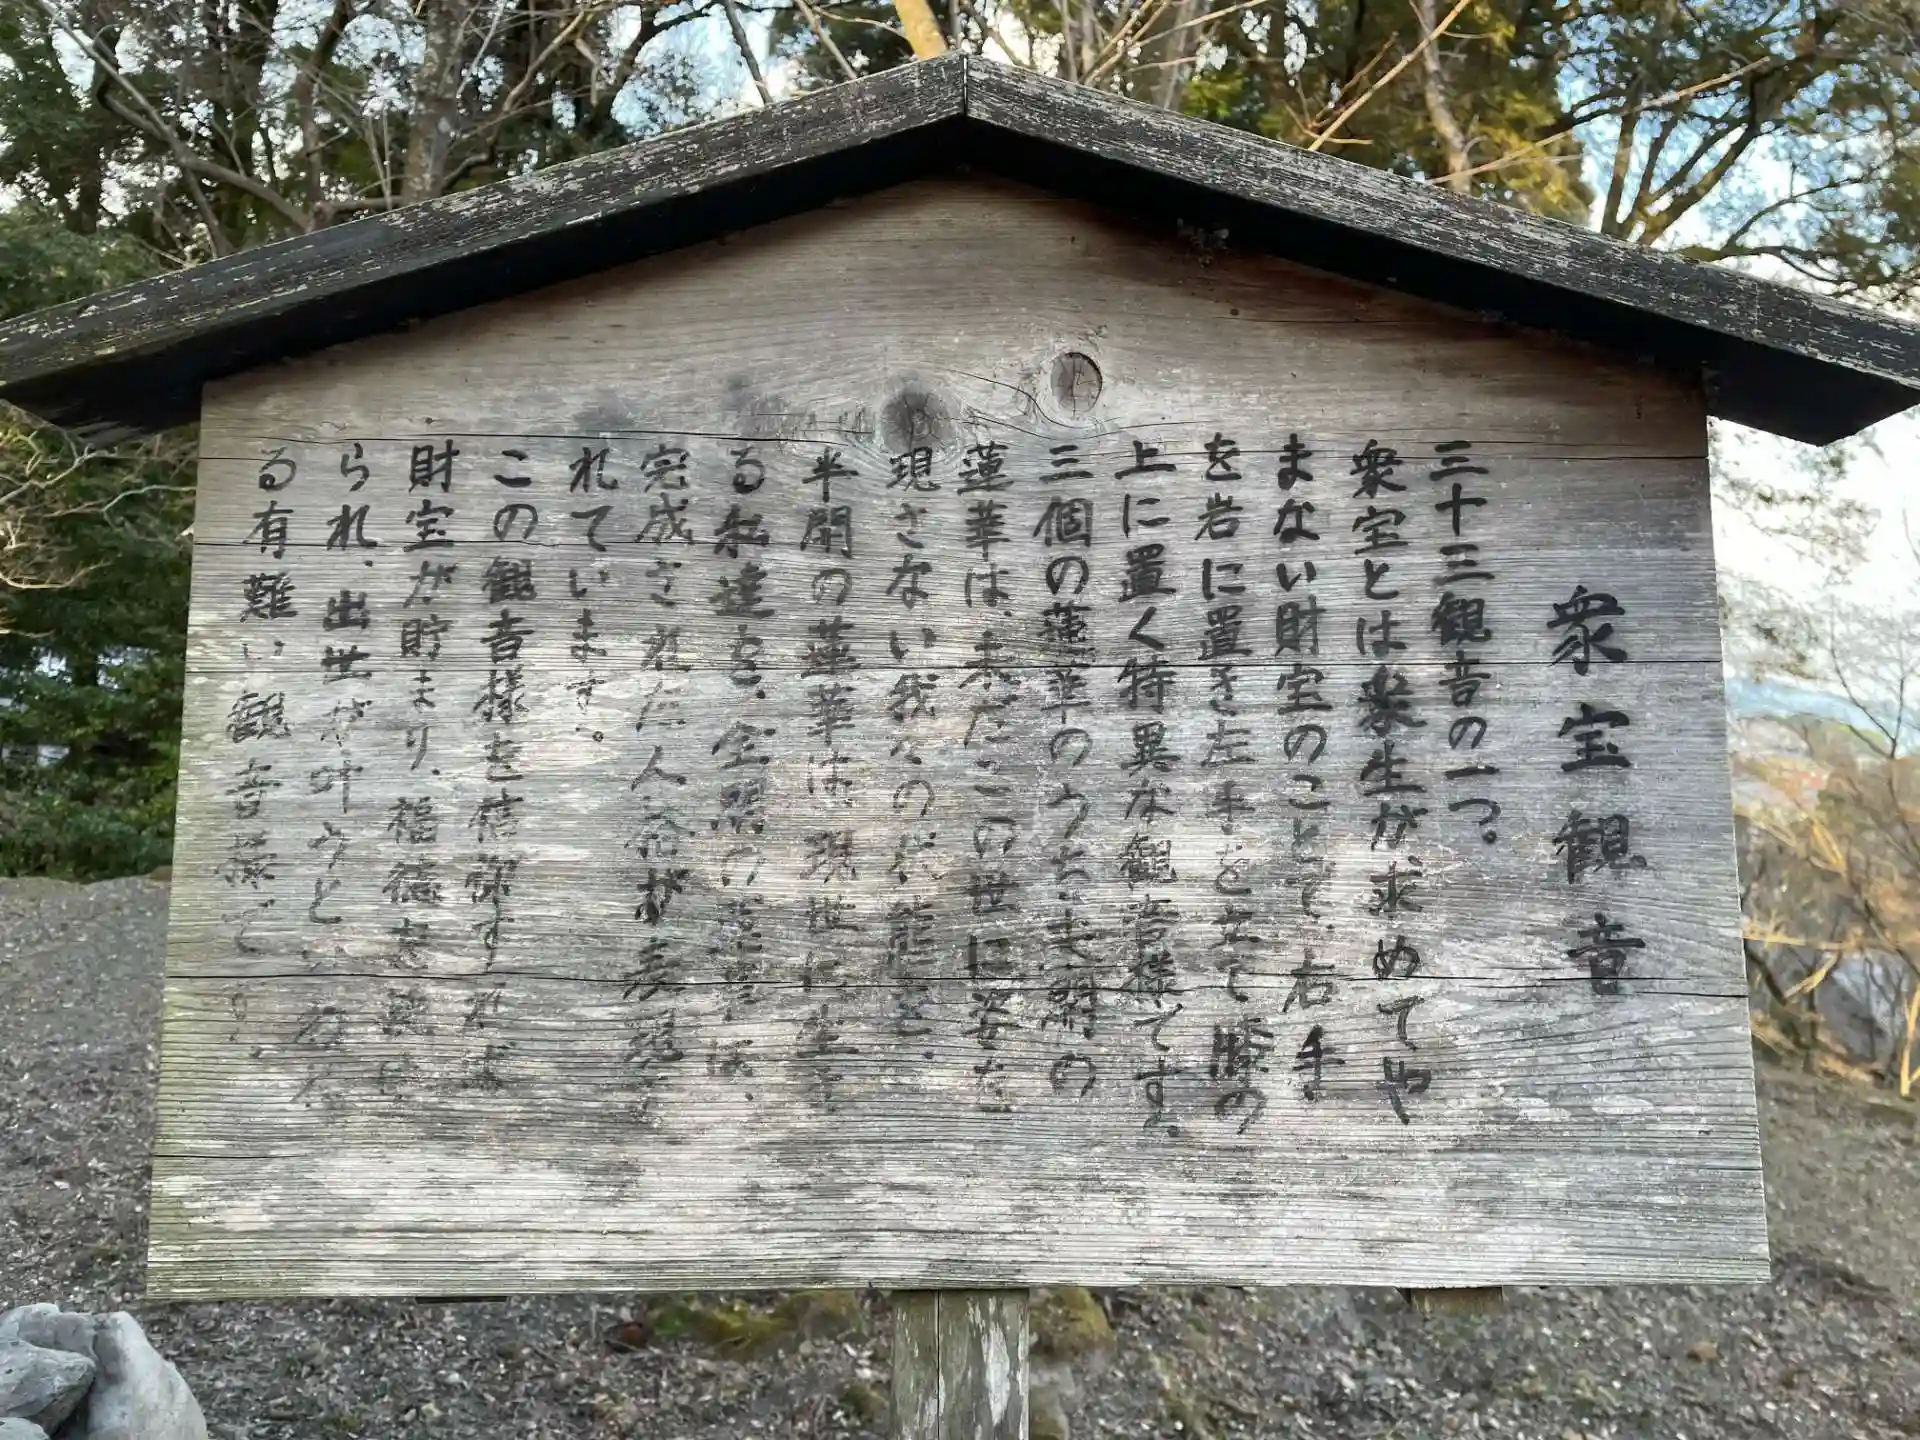 衆宝観音
三十三観音の一つ。
衆宝とは衆生が求めてや
まない財宝のことで、右手
を岩に置き左手を立て膝の
上に置く特異な観音様です。
三個の蓮華のうち未開の
蓮華は、未だこの世に姿を
現さない我々の機能を、
半開の蓮華は、現世に生き
る私達を、全開の蓮華は、
完成された人格が表現さ
れています。
この観音様を信仰すれば
財宝が貯まり、福徳を
られ、出世が叶うと
る有難い観音様で